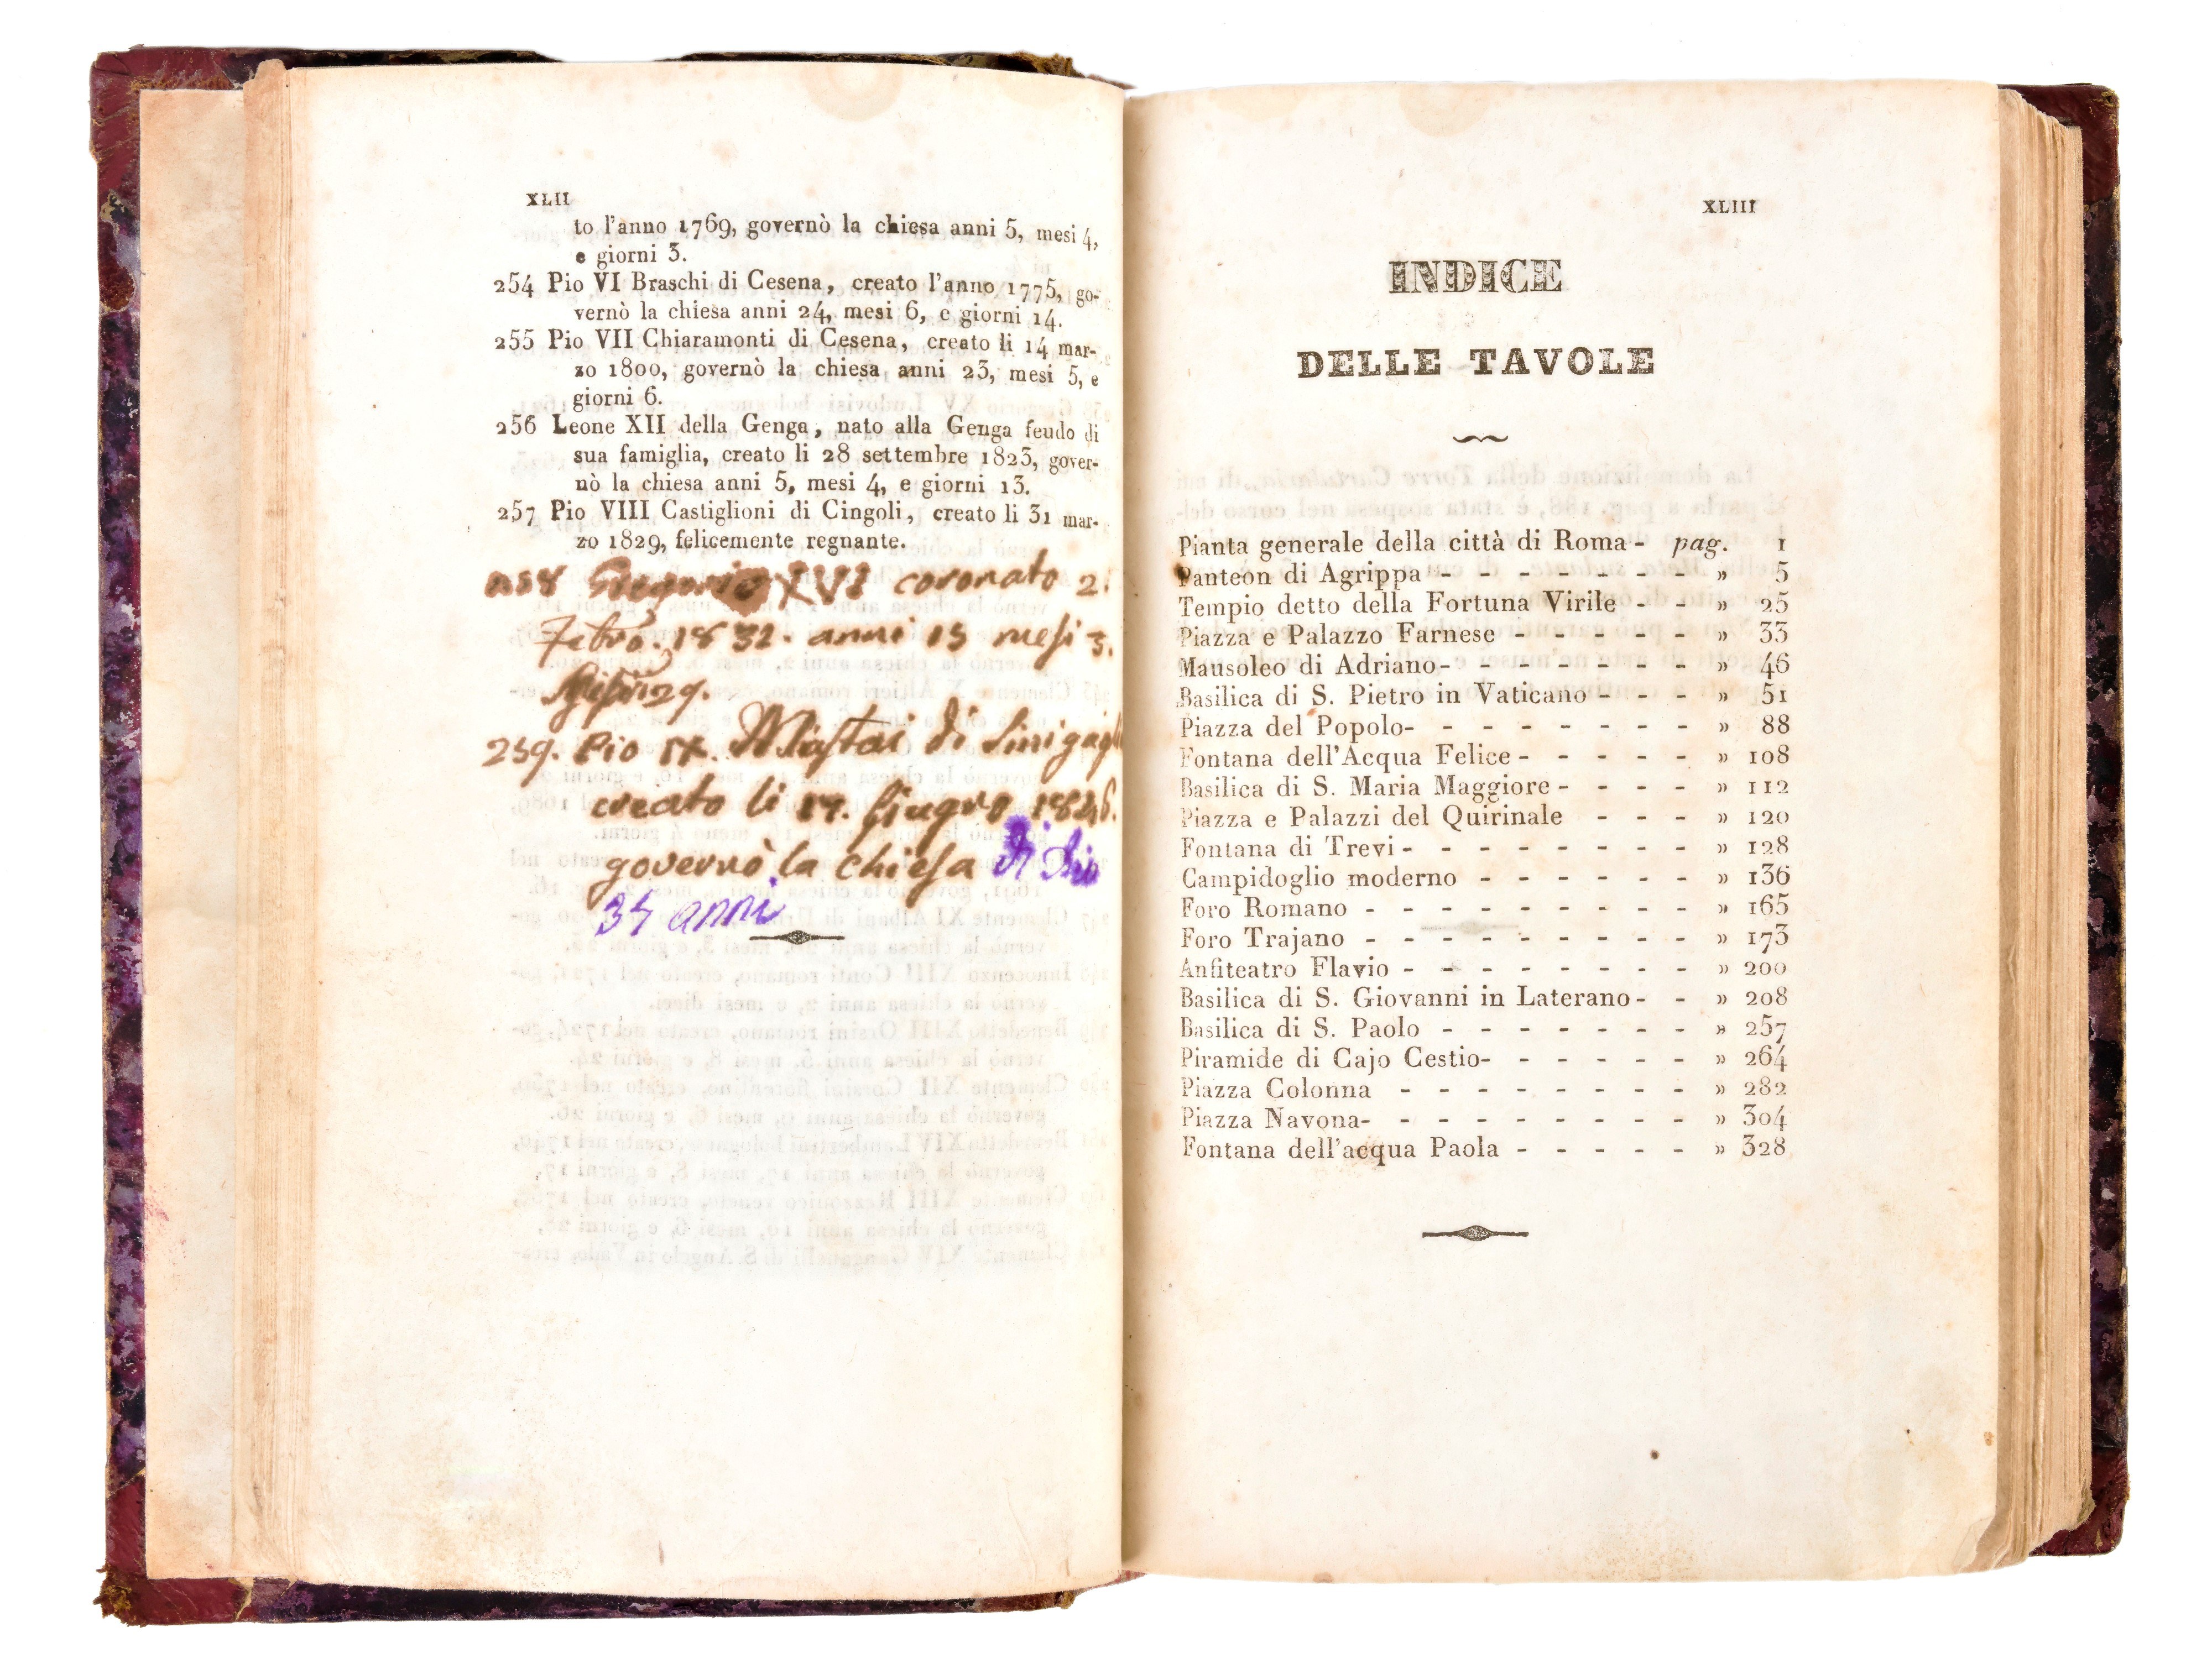 XLII
to l'anno 1769, governò la chiesa anni 5, mesi 4,
e giorni 3.
254 Pio VI Braschi di Cesena, creato l'anno 1775, go-
vernò la chiesa anni 24, mesi 6, e giorni 14.
255 Pio VII Chiaramonti di Cesena, creato li 14 mar-
zo 1800, governò la chiesa anni 23, mesi 5, e
giorni 6.
256 Leone XII della Genga, nato alla Genga feudo di
sua famiglia, creato li 28 settembre 1823, gover-
nò la chiesa anni 5, mesi 4, e giorni 13.
257 Pio VIII Castiglioni di Cingoli, creato li 31 mar-
zo 1829, felicemente regnante.
Gregorio XVI coronato 2.
Febro. 1832. anni 15 mesi 3.
259. Pio IX. Mastai di Sinigagl
creato li 17. Giugno 1846.
governò la chiesa di Dio
34 anni
XLIII
INDICE
DELLE TAVOLE
Pianta generale della città di Roma - pag. 1
Panteon di Agrippa - - - - - - - - » 5
Tempio detto della Fortuna Virile - - » 25
Piazza e Palazzo Farnese - - - - - - » 33
Mausoleo di Adriano - - - - - - - » 46
Basilica di S. Pietro in Vaticano - - - » 51
Piazza del Popolo - - - - - - - - » 88
Fontana dell'Acqua Felice - - - - - » 108
Basilica di S. Maria Maggiore - - - - » 112
Piazza e Palazzi del Quirinale - - - » 120
Fontana di Trevi - - - - - - - - » 128
Campidoglio moderno - - - - - - » 136
Foro Romano - - - - - - - - - » 165
Foro Trajano - - - - - - - - - » 173
Anfiteatro Flavio - - - - - - - - » 200
Basilica di S. Giovanni in Laterano - - » 208
Basilica di S. Paolo - - - - - - - » 257
Piramide di Cajo Cestio - - - - - - » 264
Piazza Colonna - - - - - - - - » 282
Piazza Navona - - - - - - - - - » 304
Fontana dell'acqua Paola - - - - - » 328